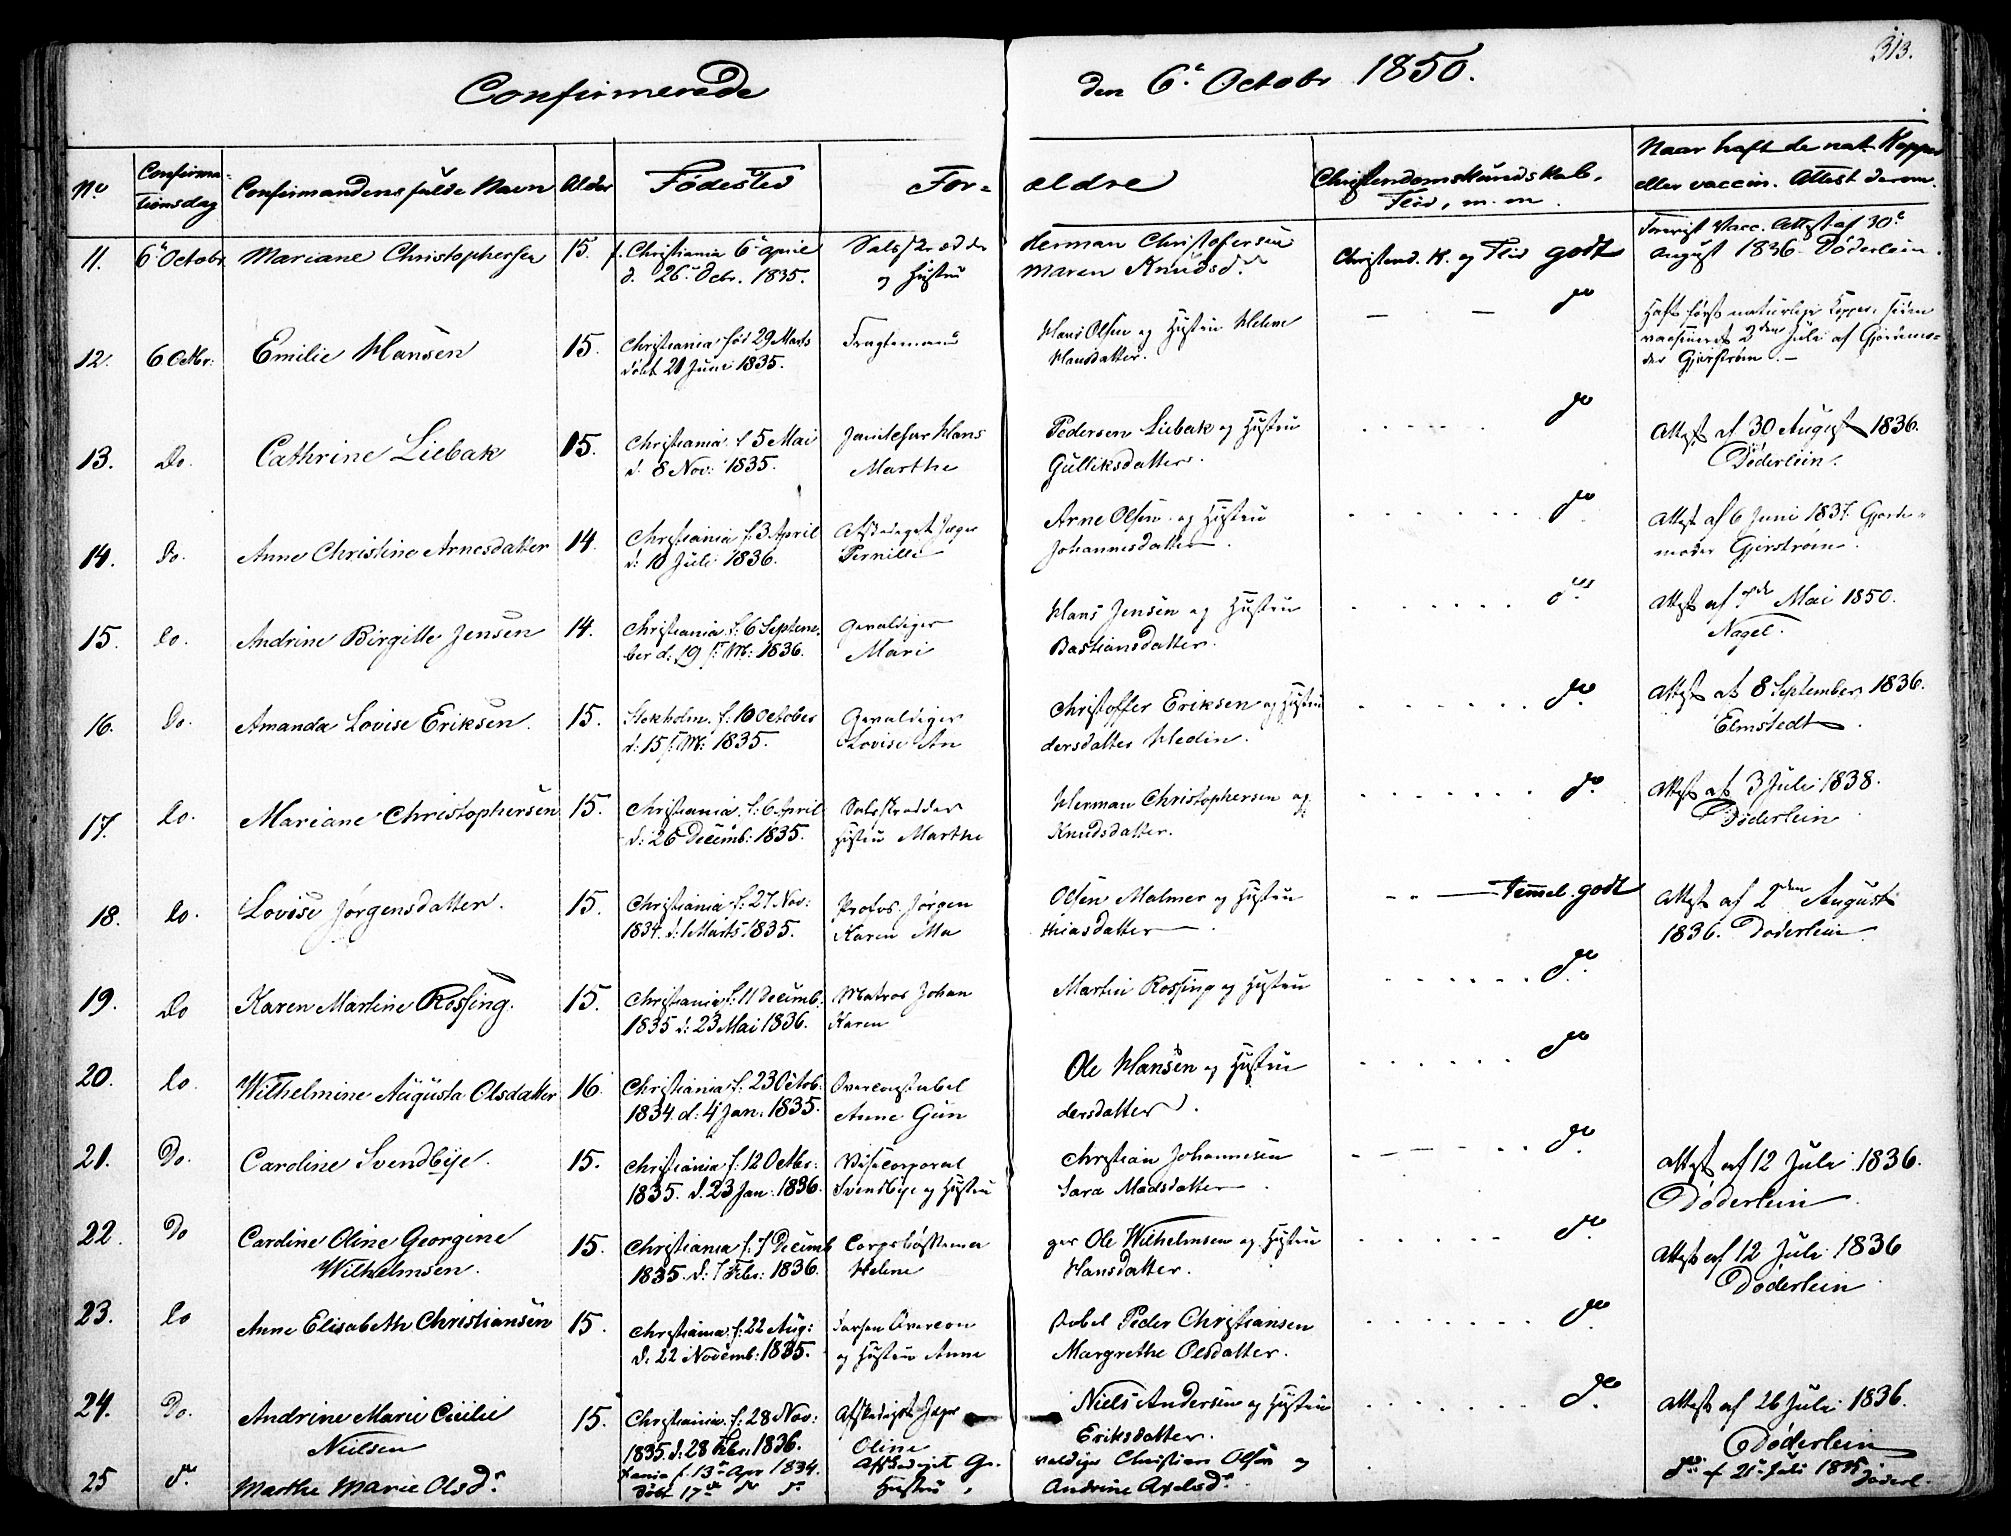 313.
Confirmerede den 6te Octobr 1850.
No Confirmationsdag Confirmandens fulde Navn Alder Fødested Forældre Christendomskundskab, Flid, m. m. Naar haft de nat. Kopper eller vaccin. Attest derom.
11. 6te Octobr Mariane Christophersen 15. f. Christiania 6te April Herman Christofersen Christend. K. og Flid godt Vacc. Attest af 30te
d. 26de Debr. 1835. og Hustru Maren Knudsd. August 1836 Døderlein.
12. 6 Octbr: Emilie Hansen 15. Christiania fød 29 Marts Hans Olsen og Hustru Helene do Haft først naturlige Kopper, siden
døbt 21 Juni 1835. Hansdatter. vaccineret 2den Juli af Gjordemo-
der Gjerstrøm.
13. Do. Cathrine Liebak 15. Christiania f 5 Mai Hans Pedersen Liebak og Hustru do Attest af 30 August 1836.
d. 8 Nov: 1835. Marthe Gulliksdatter. Døderlein.
14. Do. Anne Christine Arnesdatter 14. Christiania f. 3 April Afskediget Jæger Arne Olsen og Hustru do Attest af 6 Juni 1837. Gjorde-
d: 10 Juli 1836. Pernille Johannesdatter. moder Gjerstrøm.
15. Do. Andrine Birgitte Jensen 14. Christiania f: 6 Septem- Gevaldiger Hans Jensen og Hustru do Attest af Mai 1850.
ber d: 19 s: M: 1836. Mari Bastiansdatter. Nagel.
16. Do. Amanda Lovise Eriksen. 15. Stokholm. f: 10 October Gevaldiger Christoffer Eriksen og Hustru do Attest af 8 September 1836.
d: 15 s: M: 1835. Lovise An dersdatter Hedin. Elmstedt.
17. Do. Mariane Christophersen 15. Christiania. f: 6 April Herman Christophersen og do Attest af 3 Juli 1838.
d: 26 Decemb: 1835. Hustru Marthe Knudsdatter. Døderlein
18. Do. Lovise Jørgensdatter. 15. Christiania f: 27 Nov: Profos Jørgen Olsen Malmer og Hustru Temmel. godt Attest af 2den August
1834. d: 1 Marts 1835. Karen Ma thiasdatter. 1836. Døderlein
19. Do Karen Martine Rossing. 15. Christiania f: 11 Decemb. Matros Johan Martin Rossing og Hustru do
1835 d: 23 Mai 1836. Karen
20. Do. Wilhelmine Augusta Olsdatter 16. Christiania f: 23 Octob. Overconstabel Ole Hansen og Hustru do
1834 d: 4 Jan: 1835. Anne Gun dersdatter.
21. Do. Caroline Svendbye. 15. Christiania f: 12 Octbr: Vicecorporal Christian Johannesen do Attest af 12 Juli 1836.
1835. d. 23 Jan: 1836. Svendbye og Hustru Sara Madsdatter. Døderlein
22. Do Caroline Oline Georgine 15. Christiania f: 7 Decemb Corpsbøssema ger Ole Wilhelmsen og Hustru do Attest af 12 Juli 1836
Wilhelmsen. 1835. d: 7 Febr: 1836. Helene Hansdatter. Døderlein
23. Do Anne Elisabeth Christiansen 15. Christiania. f: 22 Aug: Overcon stabel Peder Christiansen do
d. 22 Novemb: 1835. og Hustru Anne Margrethe Olsdatter.
24. Do. Andrine Marie Cecilie 15. Christiania. f: 28 Nov: Afskediget Jæger Niels Andersen og Hustru do Attest af 26 Juli 1836.
Nielsen 1835 d: 28 Febr. 1836. Oline Eriksdatter. Døderlein
25 do Marthe Marie Olsdr f. 13de Apr 1834. Afskediget Ge- valdiger Christian Olsen og do af 21de Juli 1835
Døbt 17de do do Hustru Andrine Axelsdr Døderl.